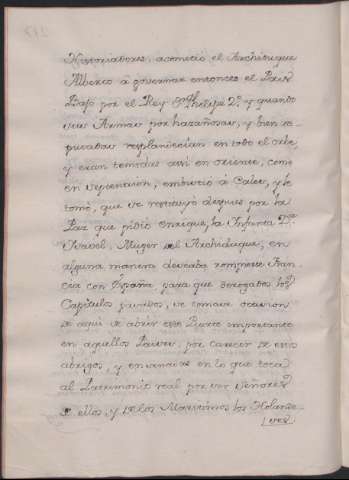 Historiadores, acometió el Archiduque
Alberto á governar entonces el Pais
Bajo por el Rey Dn. Phelipe 2º. y quando
sus Armas por hazañosas, y bien re
putadas resplandecian en todo el orbe,
y eran temidas assi en oriente, como
en septentrion, embistió á Cales, y le
tomó, que se restituyó despues por la
Paz que pidió Enrique, la Infanta Dª.
Isavel, Muger del Archiduque; en
alguna manera deseaba romperse Fran
cia con España para que derogados los
Capitulos jurados, se tomase ocasion
de aqui de abrir este Puerto importante
en aquellos Paises, por carecer de esos
abrigos, y ensenadas en lo que toca
al Patrimonio real por ser señores
de ellos, y de los Maritimos los Holande
ses